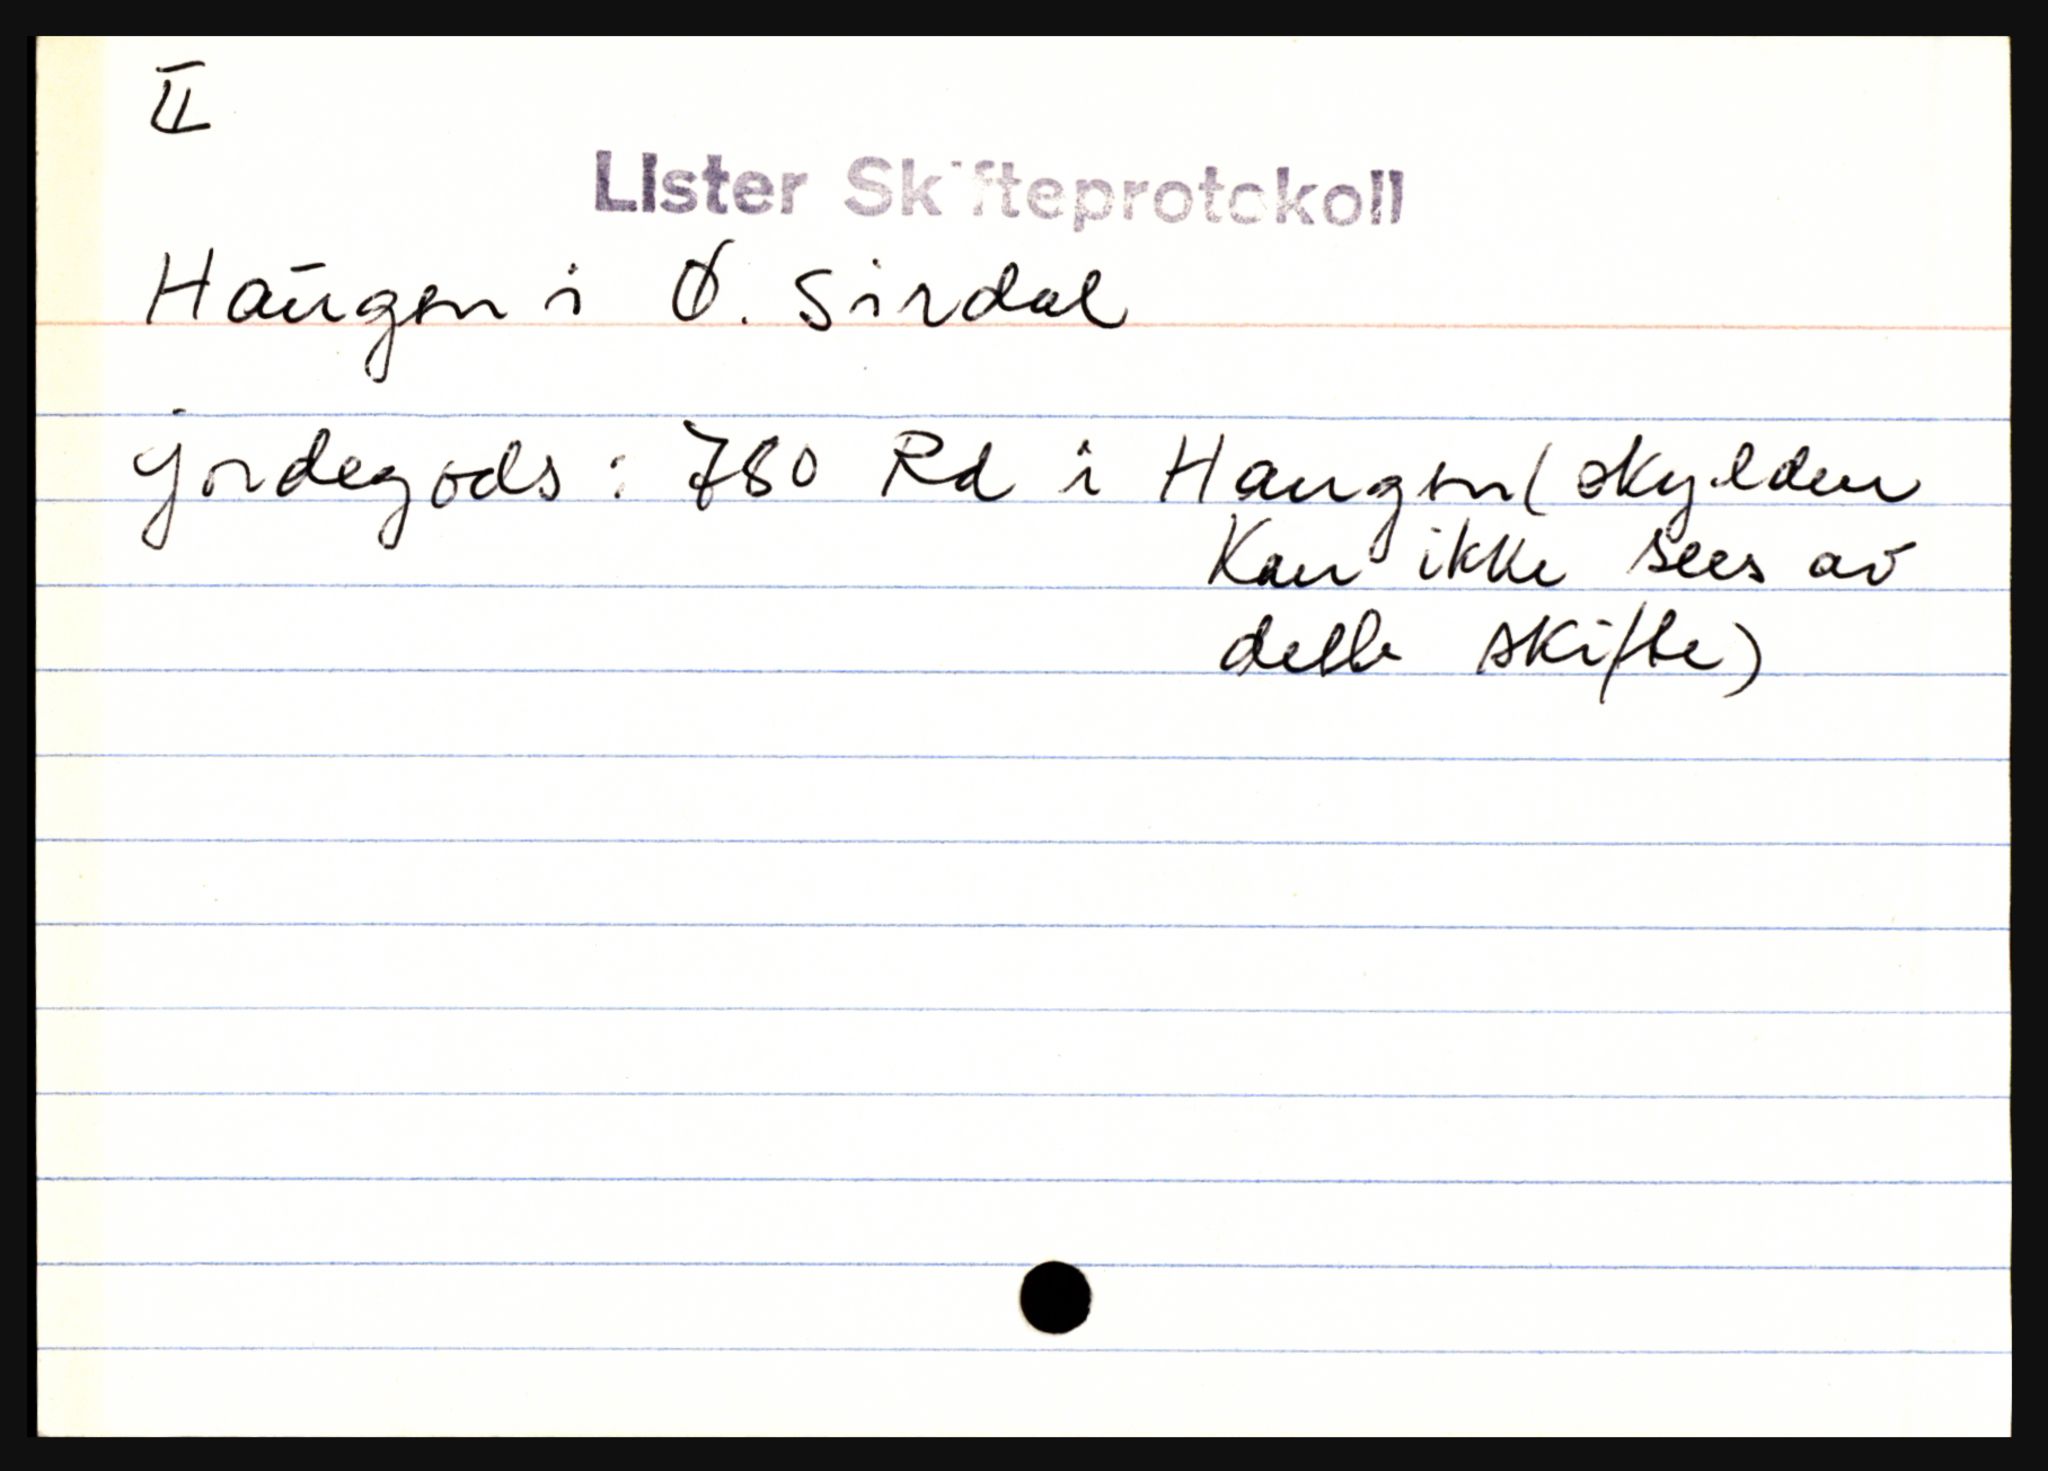 II
Lister Skifteprotokoll
Haugen i Ø. Sirdal
jordegods: 780 Rd i Haugen (skylden
kan ikke sees av
dette skifte)